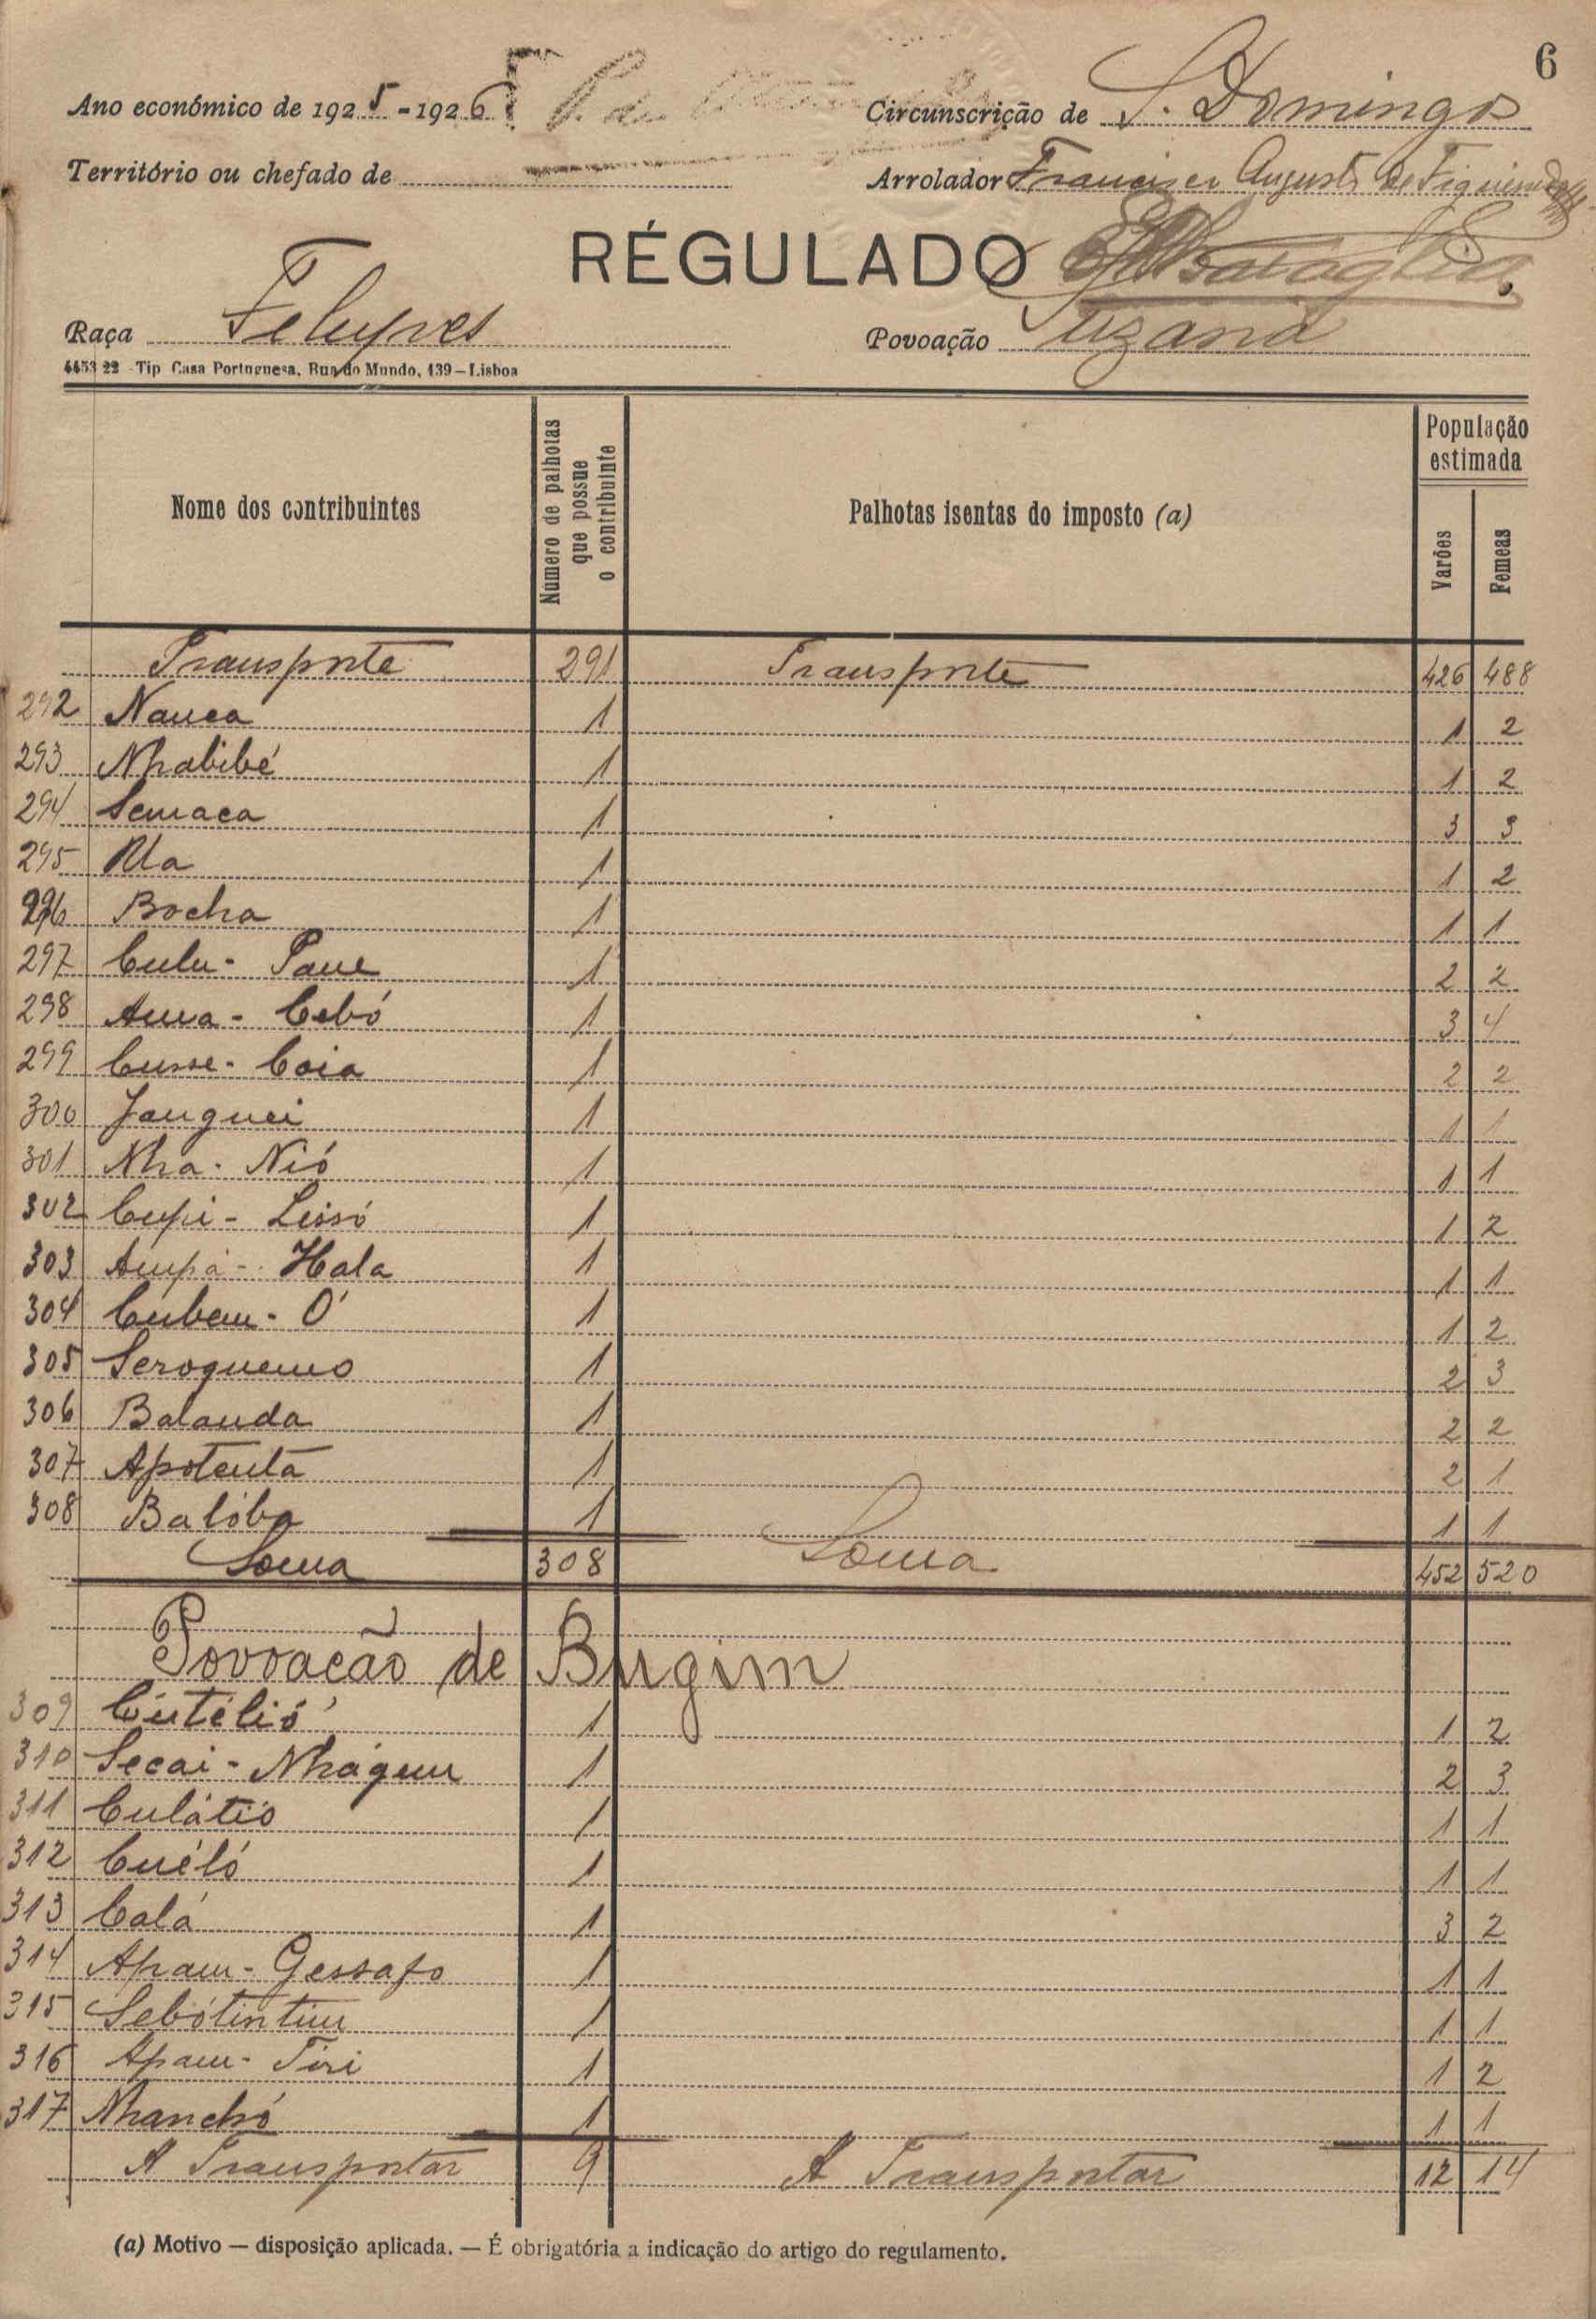 6
Ano económico de 1925-1926
Circunscrição de S. Domingos
Território ou chefado de
Arrolador Francisco Augusto de Figueiredo
RÉGULADO
Raça Felupes
Povoação Tuzana
4453 22 - Tip Casa Portuguesa, Rua do Mundo, 139 — Lisboa
Nome dos contribuintes Número de palhotas que possue o contribuinte Palhotas isentas do imposto (a) População estimada Varões Femeas
Transporte 291 Transporte 426 488
292 Nauca 1 1 2
293 Nhabibé 1 1 2
294 Semaca 1 3 3
295 Ula 1 1 2
296 Bocha 1 1 1
297 Culu - Pane 1 2 2
298 Ama - Cebó 1 3 4
299 Cusse - Coia 1 2 2
300 Janguei 1 1 1
301 Nha - Nió 1 1 1
302 Cupi - Lissó 1 1 2
303 Ampá - Hala 1 1 1
304 Cubem - Ó 1 1 2
305 Seroquemo 1 2 3
306 Balanda 1 2 2
307 Apotenta 1 2 1
308 Balóba 1 1 1
Soma 308 Soma 452 520
Povoacão de Bugim
309 Cutélió 1 1 2
310 Secai - Nhágum 1 2 3
311 Culátió 1 1 1
312 Cuéló 1 1 1
313 Calá 1 3 2
314 Apam - Gessafo 1 1 1
315 Sebótintim 1 1 1
316 Apam - Tiri 1 1 2
317 Nhanchó 1 1 1
A Transportar 9 A Transportar 12 14
(a) Motivo — disposição aplicada. — É obrigatória a indicação do artigo do regulamento.